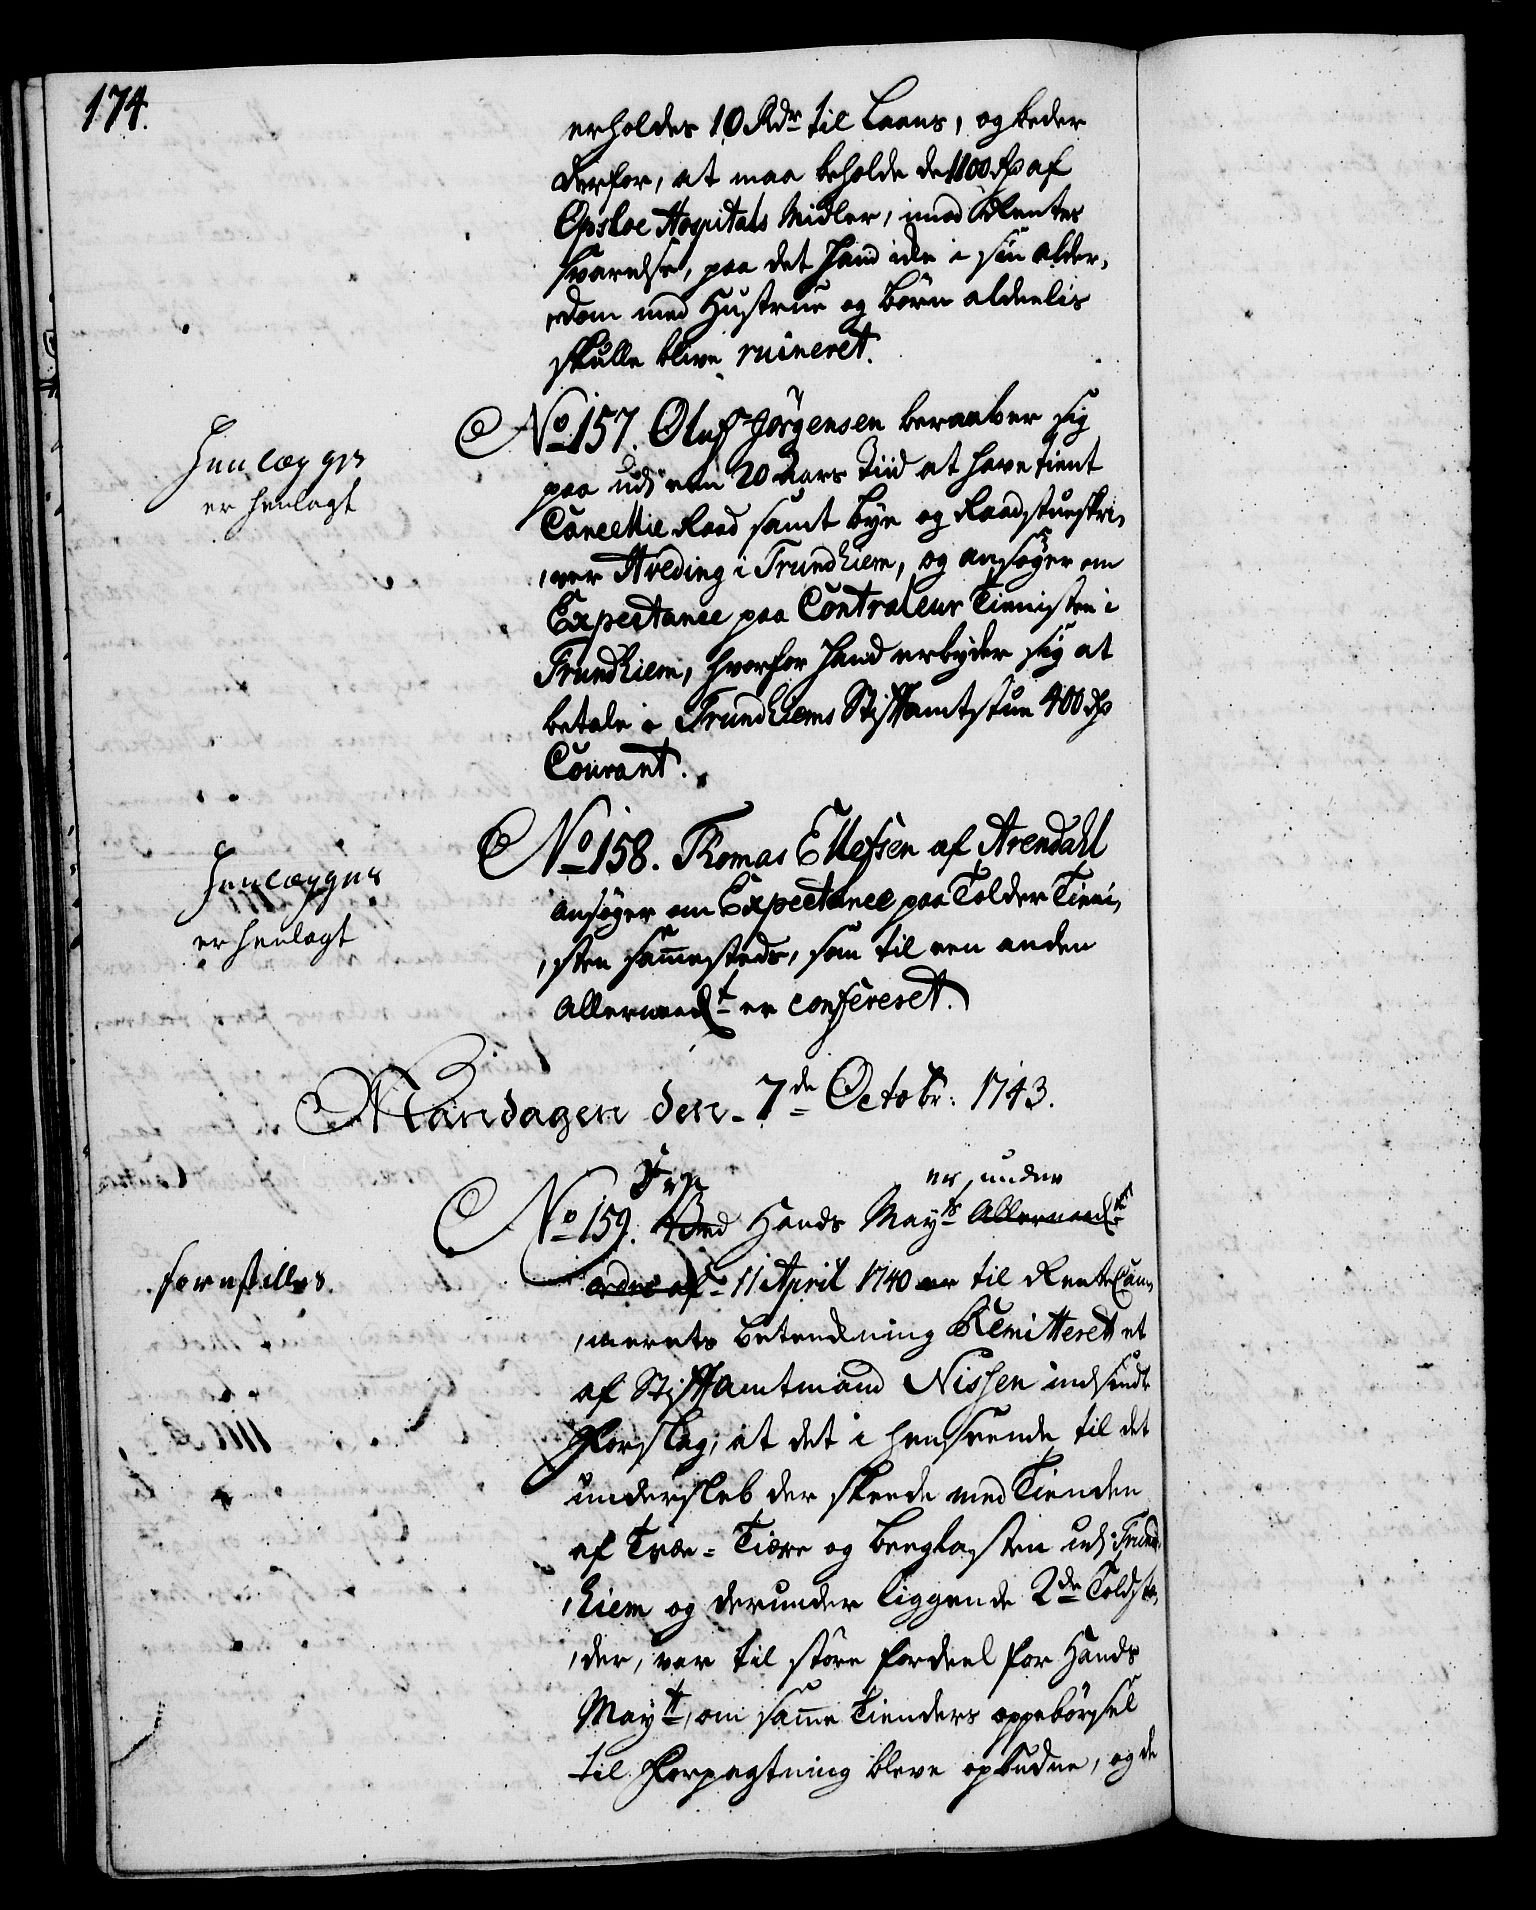 174.
erholdes 10 Rdr til Laans, og beder
derfor, at maa beholde de 1100 rdr af
Opsloe Hospitals Midler, imod Rentes
svarelse, paa det Hand icke i sin alder,
dom med Hustrue og Børn aldeelis
skulle blive ruineret.
No 157. Oluf Jørgensen beraaber sig
paa udi een 20 Aars Tiid at have tient
Cancellie Raad samt Bye og Raadstueskri,
,ver Hveding i Trundhiem, og ansøger om
Expectance paa Contraleur Tienisten i
Trundhiem, hvorfor Hand erbyder sig at
betale i Trundhiems Stiftamtstue 400 rdr
Courant.
Henlægges
er henlagt
No 158. Thomas Ellefsen af Arendahl
ansøger om Expectance paa Tolder Tieni,
,sten sammesteds, som til een anden
allernaadt er confereret.
Henlægges
er henlagt
Mandagen den 7de Octobr: 1743.
No 159. Hands Mayts Allernaadte
er under
ordre af 11 April 1740 er til Rente Cam,
,merets betenkning Remitteret et
af Stiftamtmand Nissen indsendt
Forslag, at det i henseende til det
undersleb der skeede med Tienden
af Træ- Tiære og Berglasten udi Trund,
,hiem og derunder liggende 2de Toldste,
,der, var til større fordeel for Hands
Maytt, om samme Tienders oppebørsel
til Forpagtning bleve opbudne, og de
forestilles.